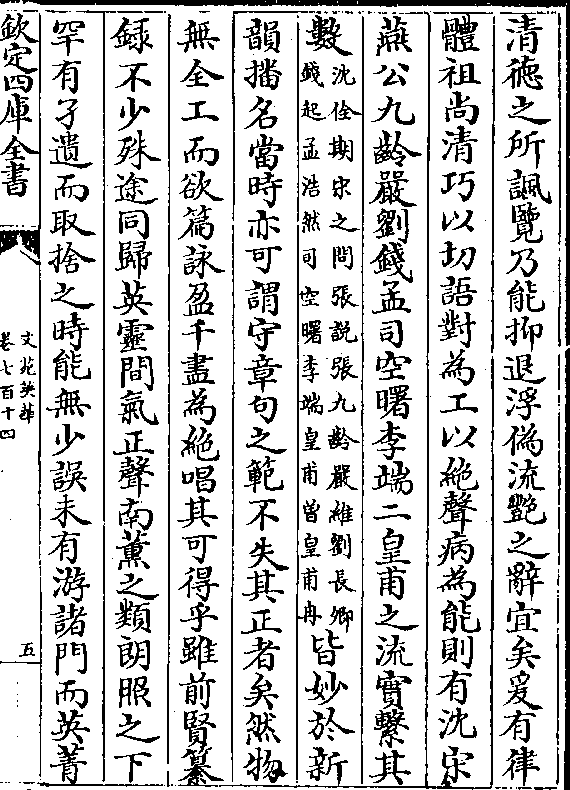 清徳之所諷覽乃能抑退浮偽流艷之辭宜矣爰有律
體祖尚清巧以切語對為工以絶聲病為能則有沈宋
燕公九齡嚴劉錢孟司空曙李端二皇甫之流實繫其
數沈佺期宋之問張說張九齡嚴維劉長卿
錢起孟浩然司空曙李端皇甫曾皇甫冉皆妙於新
韻播名當時亦可謂守章句之範不失其正者矣然物
無全工而欲篇詠盈千盡為絶唱其可得乎雖前賢纂
録不少殊途同歸英靈間氣正聲南薫之類朗照之下
罕有孑遺而取捨之時能無少誤未有游諸門而英菁
欽定四庫全書
文苑英華
卷七百十四
五